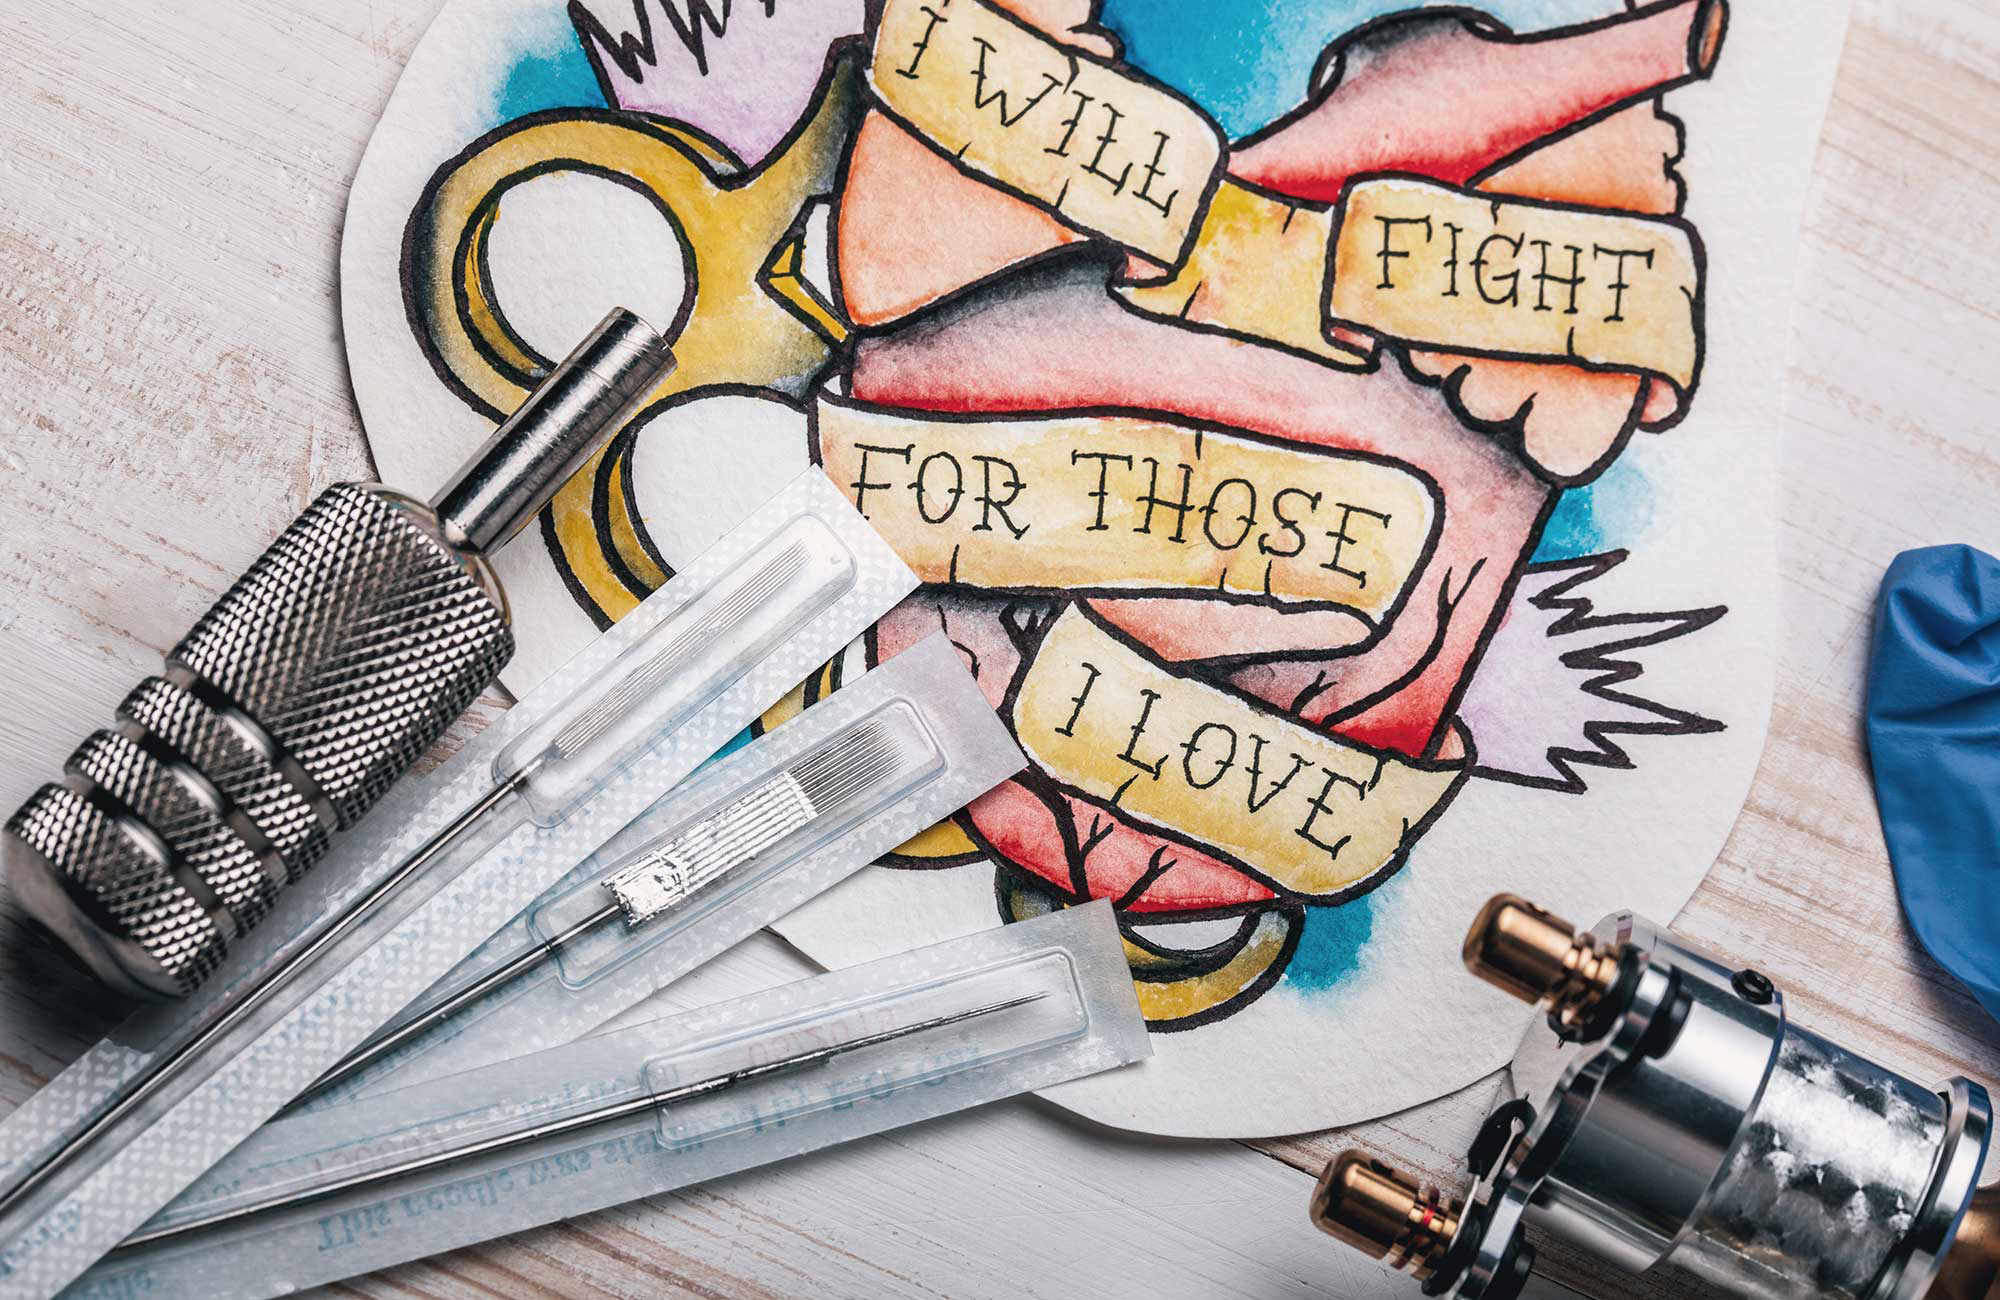 I WILL
FIGHT
FOR THOSE
I LOVE
This needle was sterilized by E.O. Gas